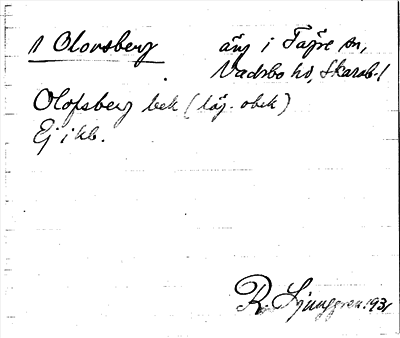 Olovsberg äng i Fägre sn,
Vadsbo hd, Skarab. l
Olofsberg bek (läg. obek)
Ej i kb.
R. Ljunggren 1931